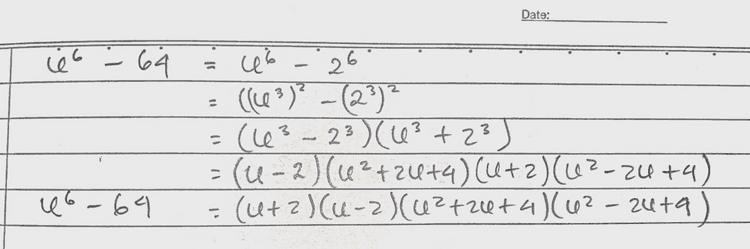 Date:
u⁶ - 64 = u⁶ - 2⁶
= ((u³)² - (2³)²
= (u³ - 2³)(u³ + 2³)
= (u - 2)(u² + 2u + 4)(u + 2)(u² - 2u + 4)
u⁶ - 64 = (u + 2)(u - 2)(u² + 2u + 4)(u² - 2u + 4)